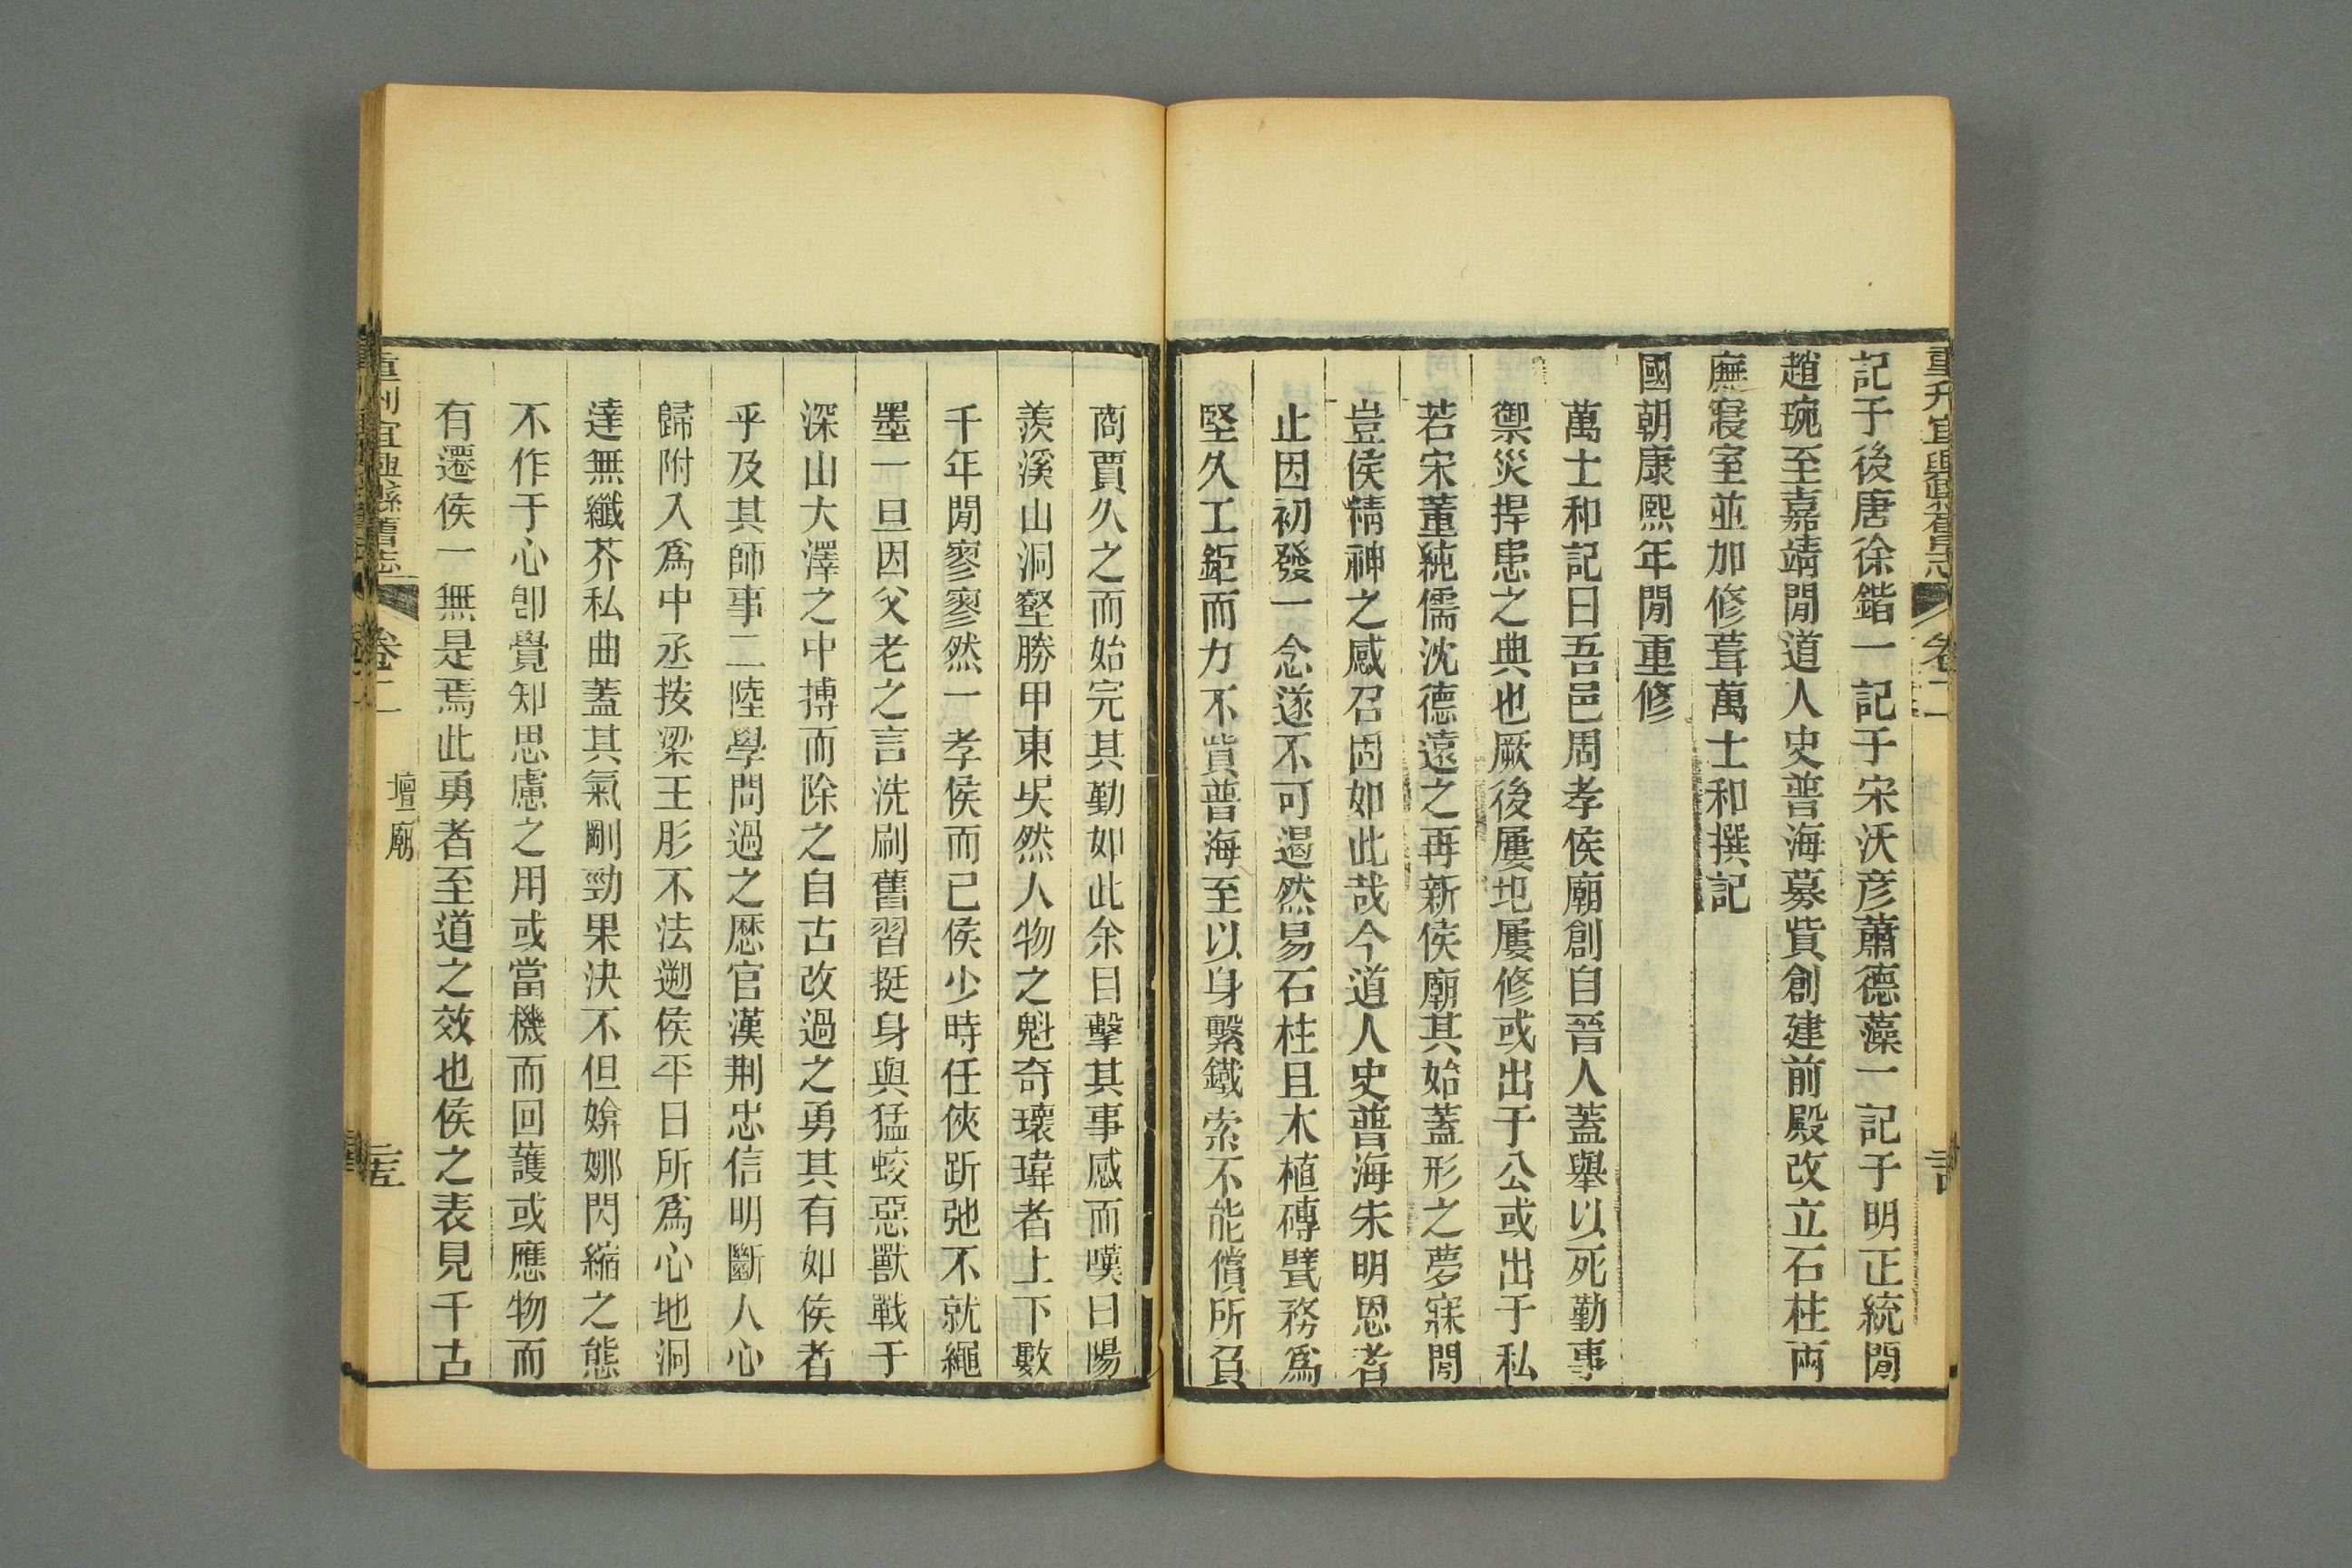 記于後唐徐鍇一記于宋沃彦蕭德藻一記于明正統閒
趙琬至嘉靖閒道人史普海募貲創建前殿改立石柱兩
廡寢室並加修葺萬士和撰記
國朝康熙年閒重修
萬士和記曰吾邑周孝侯廟創自晉人蓋舉以死勤事
禦災捍患之典也厥後屢圯屢修或出于公或出于私
若宋董純儒沈德遠之再新侯廟其始蓋形之夢寐閒
豈侯精神之感召固如此哉今道人史普海朱明恩者
止因初發一念遂不可遏然易石柱且木植磚甓務爲
堅久工鉅而力不貲普海至以身繫鐵索不能償所負
商賈久之而始完其勤如此余目擊其事感而嘆曰陽
羨溪山洞壑勝甲東吳然人物之魁奇瓌瑋者上下數
千年閒寥寥然一孝侯而已侯少時任俠跅弛不就繩
墨一旦因父老之言洗刷舊習挺身與猛蛟惡獸戰于
深山大澤之中摶而除之自古改過之勇其有如侯者
乎及其師事二陸學問過之歷官漢荆忠信明斷人心
歸附入爲中丞按梁王肜不法遡侯平日所爲心地洞
達無纖芥私曲蓋其氣剛勁果決不但媕娜閃縮之態
不作于心卽覺知思慮之用或當機而回護或應物而
有遷侯一無是焉此勇者至道之效也侯之表見千古
重刊宜興縣舊志 卷二 壇廟 二五